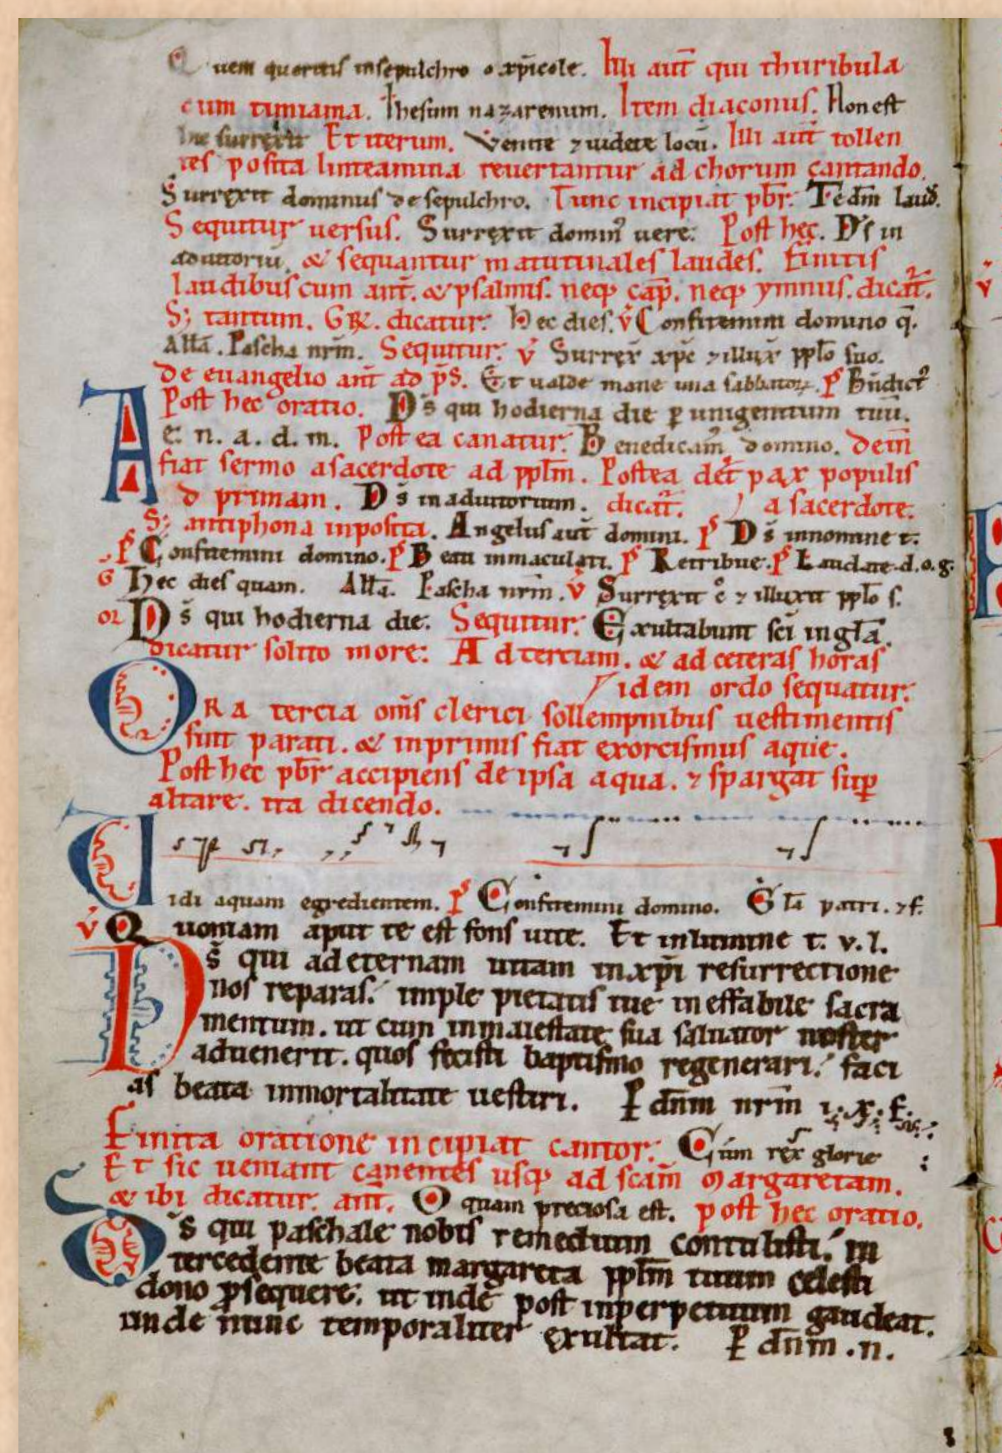 Quem queritis insepulchro o xp̄icole. Illi aut̄ qui thuribula
cum timiama. Ihesum nazarenum. Item diaconus. Non est
hic surrexit Et iterum. Venite ⁊ uidete locū. Illi aut̄ tollen
tes posita linteamina reuertantur ad chorum cantando.
Surrexit dominus de sepulchro. Tunc incipiat pbr̄. Te dm̄ laud̄.
Sequitur uersus. Surrexit domin᷒ uere. Post hec. D's in
adiutoriū. & sequantur matutinales laudes. Finitis
laudibus cum ant̄. & psalmis. neqꝫ cap̄. neqꝫ ymnus. dicat̄.
S; tantum. GR̄. dicatur. Hec dies. v̄ Confitemini domino q̄.
All̄a. Pascha nrm̄. Sequitur. v̄ Surrex̄ xp̄c ⁊ illux̄ ppl̄o suo.
De euangelio ant̄ ad p̄s. Et ualde mane una sabbatoꝝ. P̄ B̄ndict᷒
Post hec oratio. D̄s qui hodierna die p unigenitum tuū.
e. n. a. d. m. Post ea canatur. Benedicam᷒ domino. dein̄
fiat sermo asacerdote ad pplm̄. Postea det̄ pax populis
Ad primam. D̄s inadiutorium. dicat̄. a sacerdote.
S; antiphona inposita. Angelus aut̄ domini. p̄s D̄s innomine t.
p̄s Confitemini domino. p̄s Beati inmaculati. p̄s Retribue. p̄s Laudate. d. o. g.
G Hec dies quam. All̄a. Pascha nrm̄. v̄ Surrexit ⁊ illuxit ppl̄o s.
or D̄s qui hodierna die. Sequitur. Exultabunt sc̄i ingl̄a.
dicatur solito more. Ad terciam. & ad ceteras horas
idem ordo sequatur.
ORA tercia om̄s clerici sollempnibus uestimentis
sint parati. & inprimis fiat exorcismus aque.
Post hec pbr̄ accipiens de ipsa aqua. ⁊ spargat sup̄
altare. ita dicendo.
Uidi aquam egredientem. p̄s Confitemini domino. Gl̄a patri. ⁊ f.
v̄ Quoniam aput te est fons uite. Et inlumine t. v. l.
D̄s qui ad eternam uitam in xp̄i resurrectione
nos reparas. imple pietatis tue ineffabile sacra
mentum. ut cum inmaiestate sua saluator noster
aduenerit. quos fecisti baptismo regenerari. faci
as beata inmortalitate uestiri. P̄ dn̄m nrm̄ i. x. f.
Finita oratione incipiat cantor. Cūm rex glorie
Et sic ueniant canentes usqꝫ ad scam̄ Margaretam.
& ibi dicatur. ant̄. O quam preciosa est. post hec oratio.
D̄s qui paschale nobis remedium contulisti. in
tercedente beata margareta pplm̄ tuum celesti
dono ꝓsequere. ut inde post inperpetuum gaudeat.
unde nunc temporaliter exultat. P̄ dn̄m. n.